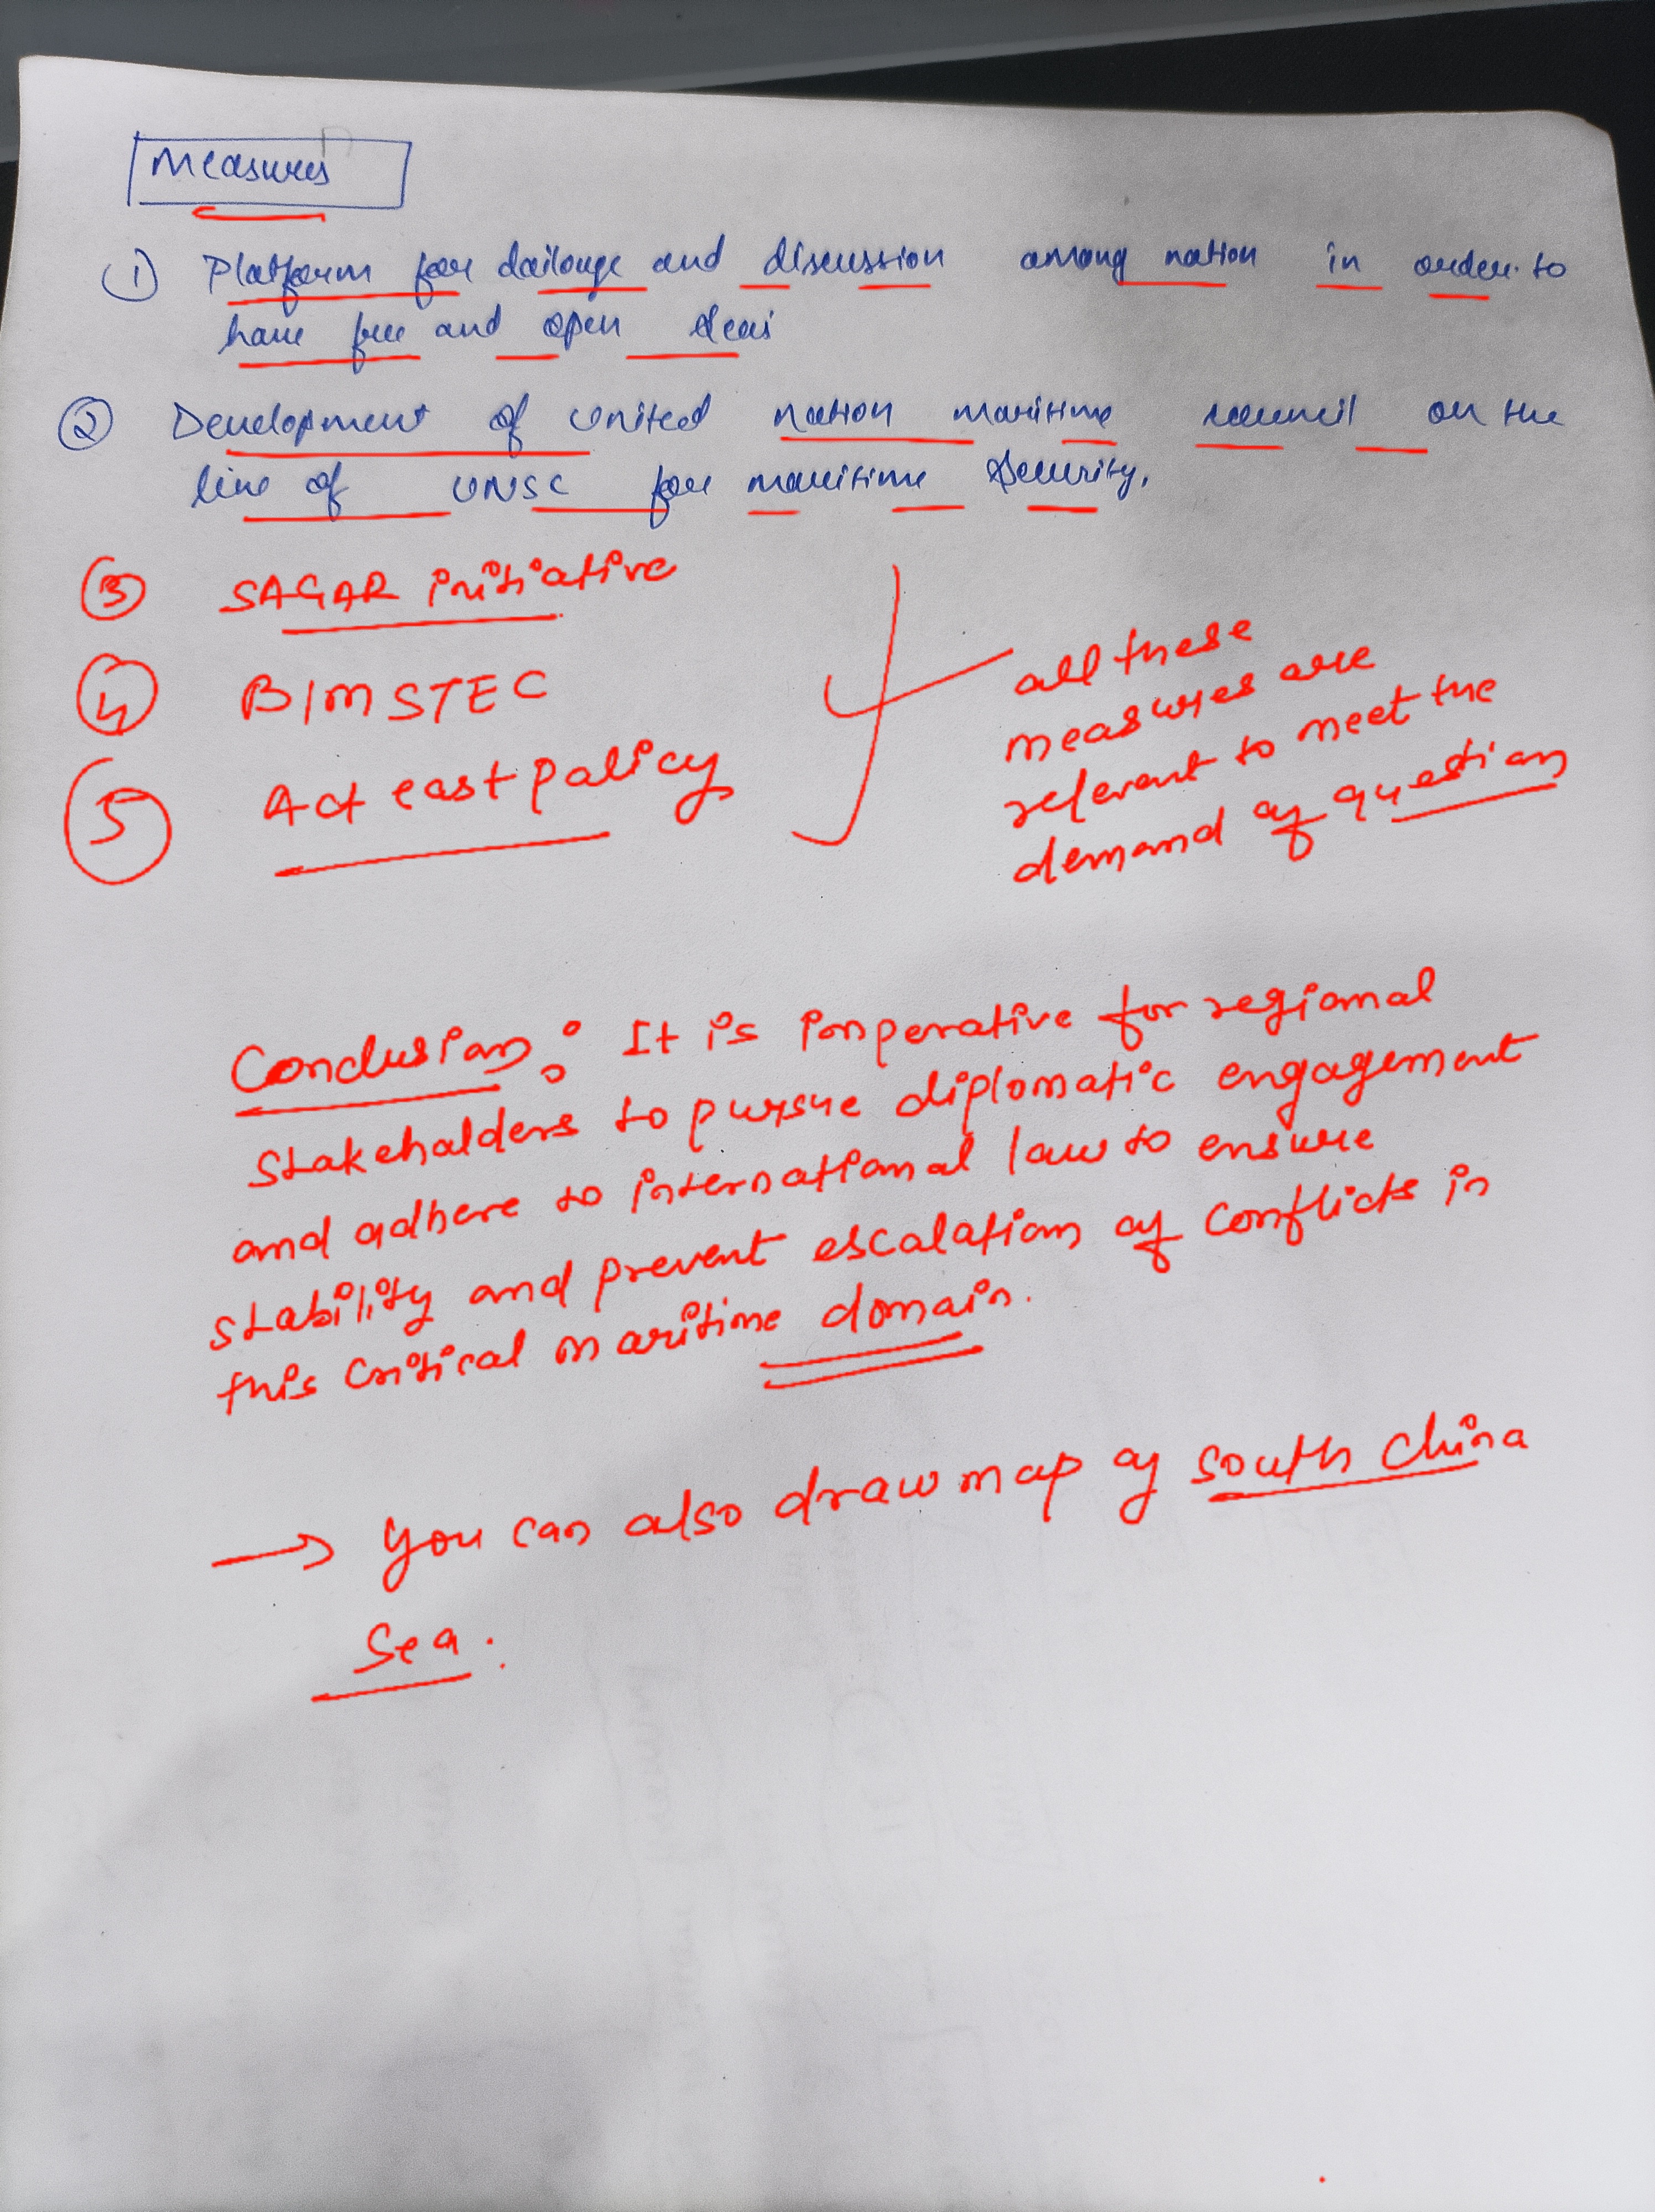 Measures
① Platform for dailouge and discussion among nation in order to
have free and open seas
② Development of United nation maritime council on the
line of UNSC for maritime Security.
③ SAGAR initiative
④ BIMSTEC
⑤ Act east policy
all these
measures are
relevant to meet the
demand of question
Conclusion: It is imperative for regional
stakeholders to pursue diplomatic engagement
and adhere to international law to ensure
stability and prevent escalation of conflicts in
this critical maritime domain.
→ You can also draw map of south China
Sea.